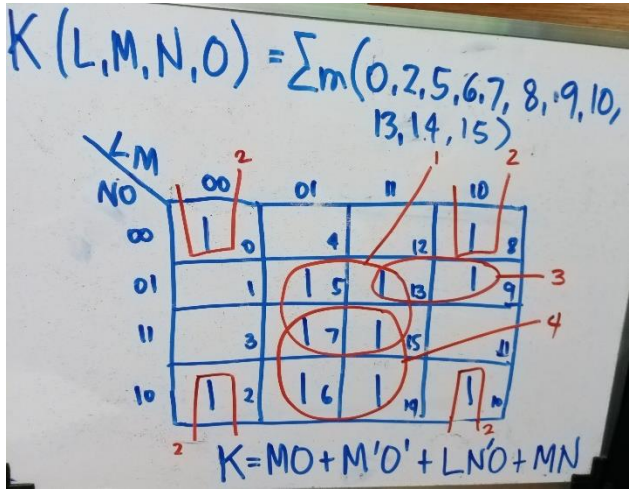 K(L,M,N,O) = Σm(0,2,5,6,7,8,9,10,
13,14,15)
1
LM 2 2
NO 00 01 11 10
00 1 0 4 12 1 8
01 1 1 5 1 13 1 9 3
11 3 1 7 1 15 11 4
10 1 2 1 6 1 14 1 10
2 2
K=MO+M'O'+LN'O+MN